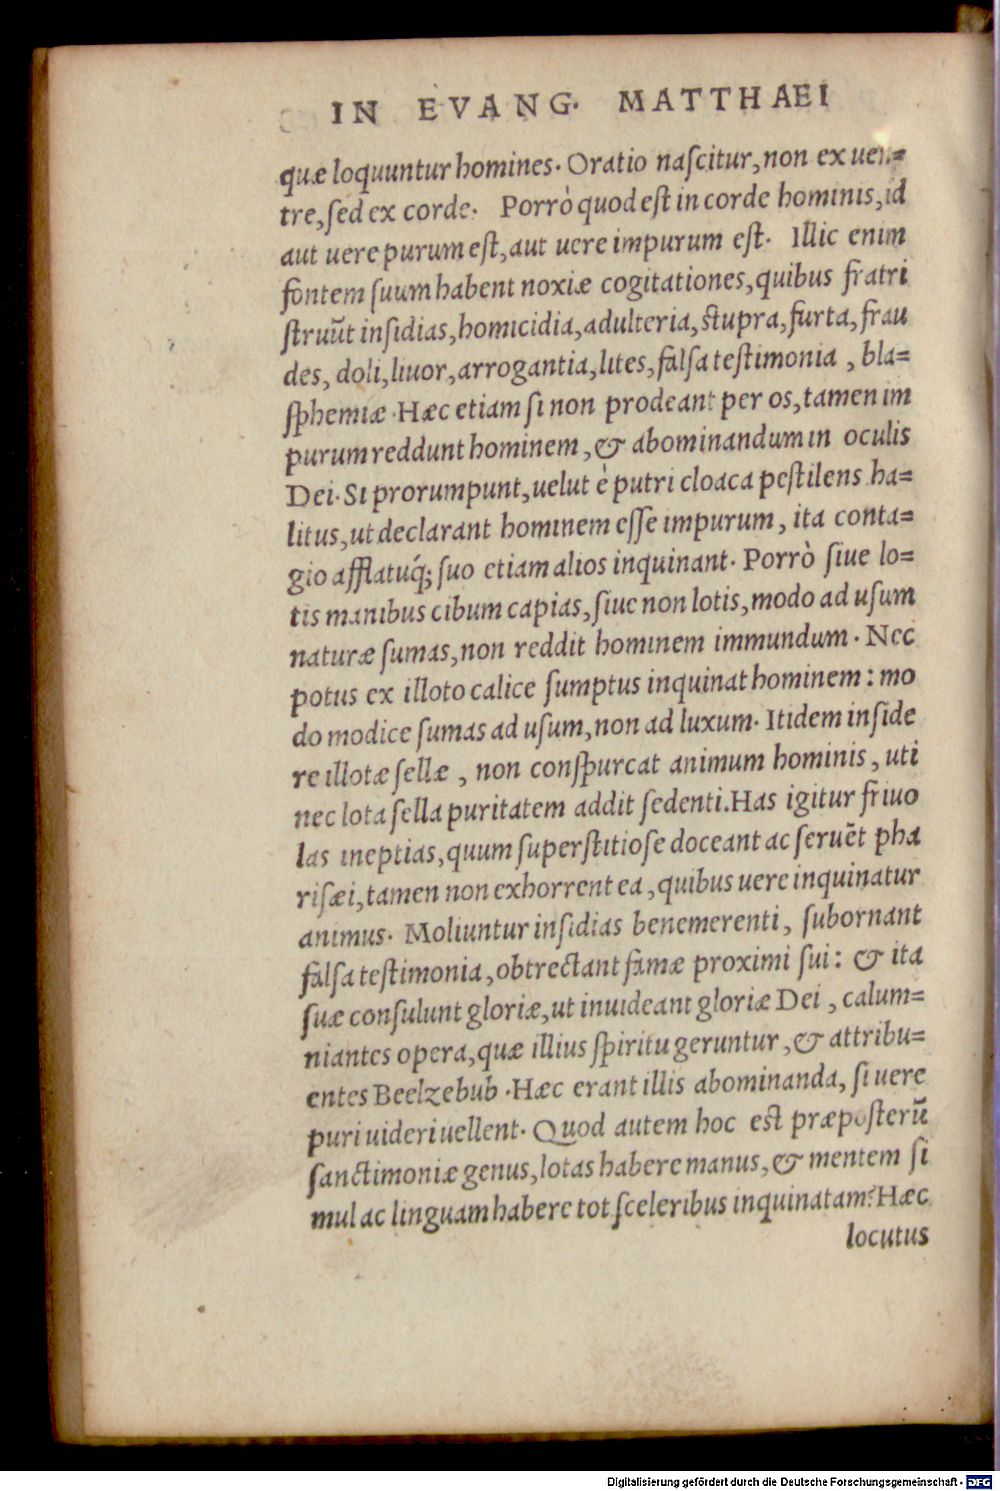 IN EVANG. MATTHAEI
quæ loquuntur homines. Oratio naſcitur, non ex uen=
tre, ſed ex corde. Porrò quod eſt in corde hominis, id
aut uere purum eſt, aut uere impurum eſt. Illic enim
fontem ſuum habent noxiæ cogitationes, quibus fratri
ſtruũt inſidias, homicidia, adulteria, ſtupra, furta, frau
des, doli, liuor, arrogantia, lites, falſa teſtimonia, bla=
ſphemiæ. Hæc etiam ſi non prodeant per os, tamen im
purum reddunt hominem, & abominandum in oculis
Dei. Si prorumpunt, uelut è putri cloaca peſtilens ha=
litus, ut declarant hominem eſſe impurum, ita conta=
gio afflatuq́; ſuo etiam alios inquinant. Porrò ſiue lo=
tis manibus cibum capias, ſiue non lotis, modo ad uſum
naturæ ſumas, non reddit hominem immundum. Nec
potus ex illoto calice ſumptus inquinat hominem: mo
do modice ſumas ad uſum, non ad luxum. Itidem inſide
re illotæ ſellæ, non conſpurcat animum hominis, uti
nec lota ſella puritatem addit ſedenti. Has igitur friuo
las ineptias, quum ſuperſtitioſe doceant ac ſeruẽt pha
riſæi, tamen non exhorrent ea, quibus uere inquinatur
animus. Moliuntur inſidias benemerenti, ſubornant
falſa teſtimonia, obtrectant famæ proximi ſui: & ita
ſuæ conſulunt gloriæ, ut inuideant gloriæ Dei, calum=
niantes opera, quæ illius ſpiritu geruntur, & attribu=
entes Beelzebub. Hæc erant illis abominanda, ſi uere
puri uideri uellent. Quod autem hoc eſt præpoſterũ
ſanctimoniæ genus, lotas habere manus, & mentem ſi
mul ac linguam habere tot ſceleribus inquinatam? Hæc
locutus
Digitalisierung gefördert durch die Deutsche Forschungsgemeinschaft - DFG